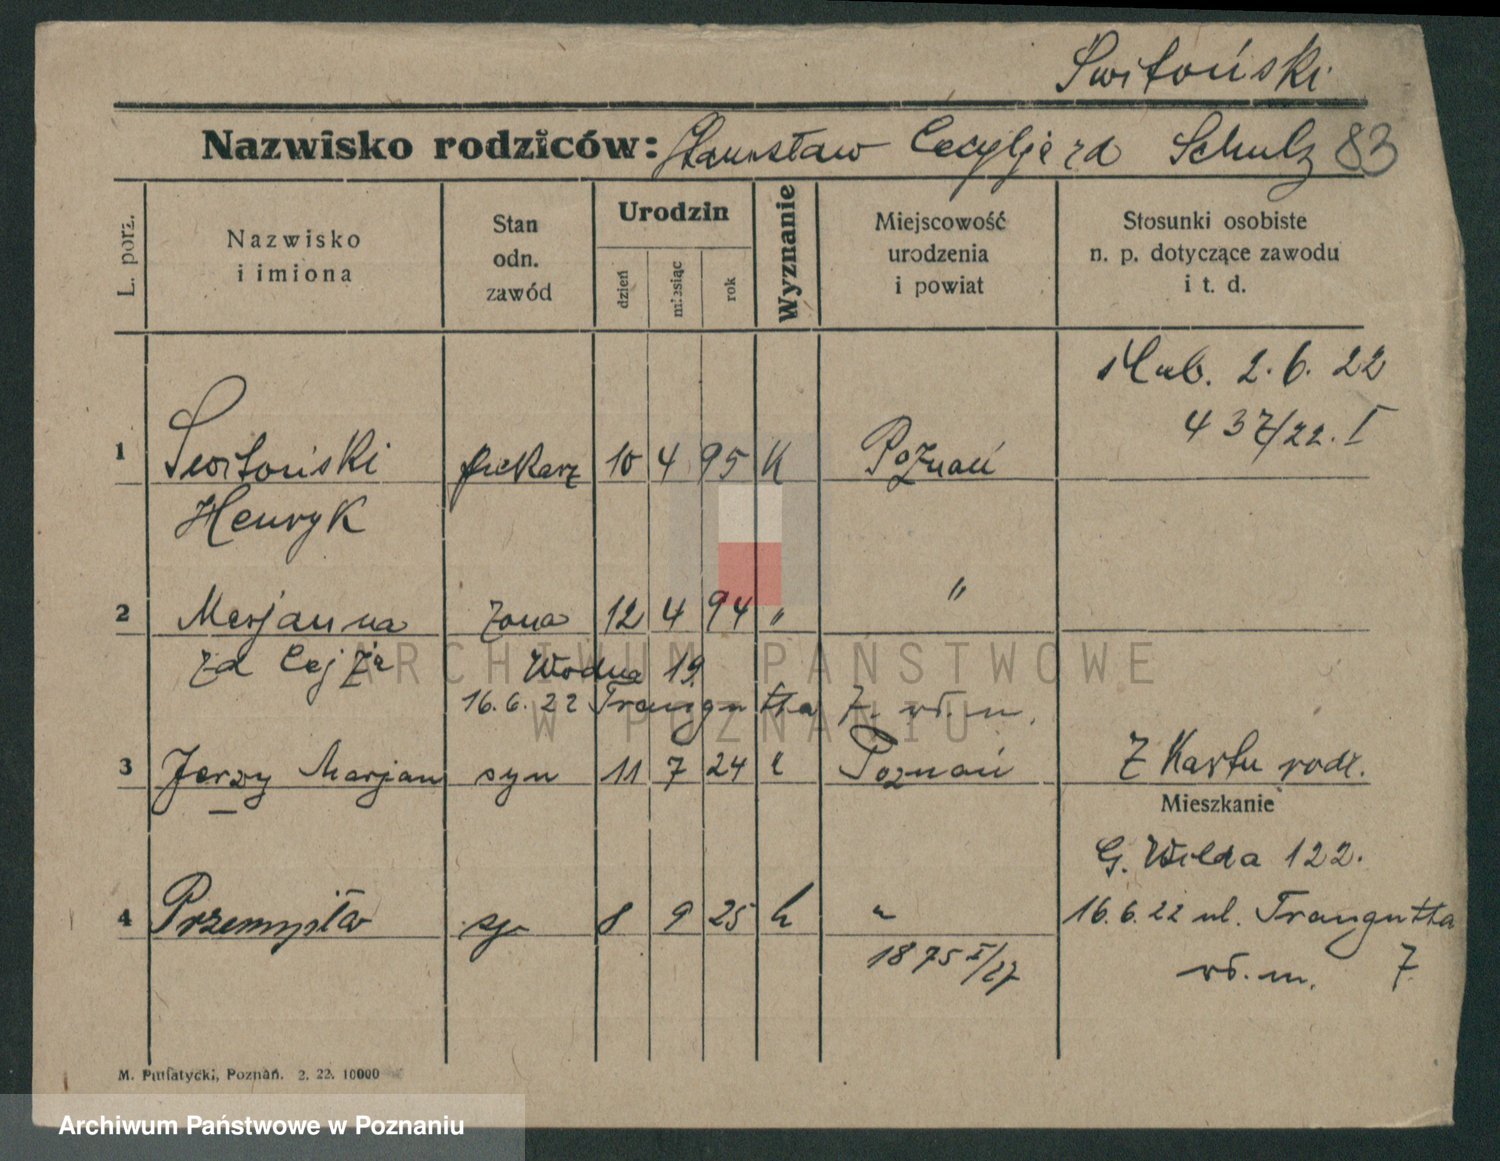 Switoński
Nazwisko rodziców: Stanisław Cecylje zd Schulz 83
L. porz.
Nazwisko
i imiona
Stan
odn.
zawód
Urodzin
dzień
miesiąc
rok
Wyznanie
Miejscowość
urodzenia
i powiat
Stosunki osobiste
n. p. dotyczące zawodu
i t. d.
2.6.22
437/22. I
1 Switoński piekarz 10 4 95 K Poznań
Henryk
2 Marjanna żona 12 4 94 " "
zd Wodna 19
16.6.22 Traugutta 7. m.
3 Jerzy Marjan syn 11 7 24 Poznań Z Karty rodz.
Mieszkanie
G. Wilda 122.
4 Przemysław sy 8 9 25 k " 16.6.22 ul. Traugutta
1875 I/27 m. 7
M. Putiatycki, Poznań. 2. 22. 10000
ARCHIWUM PAŃSTWOWE
W POZNANIU
Archiwum Państwowe w Poznaniu